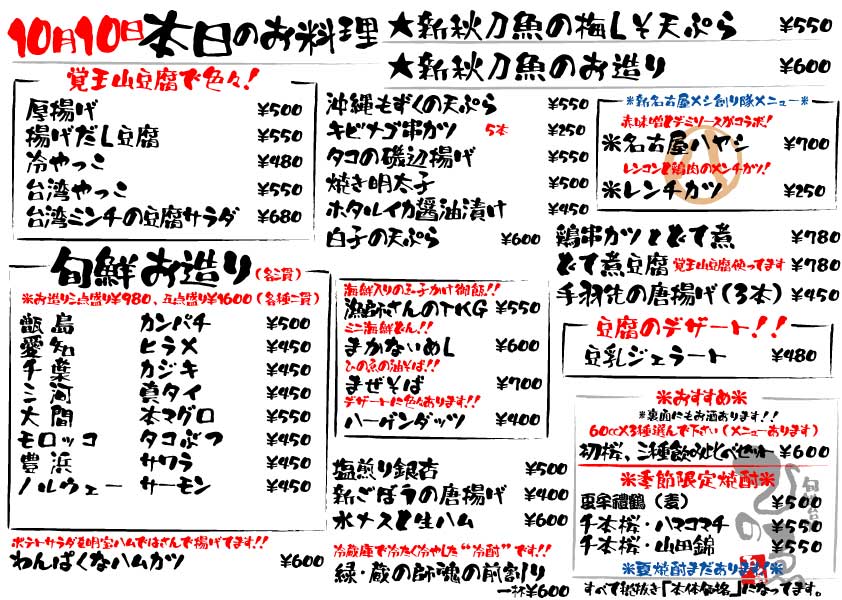 10月10日 本日のお料理
★新秋刀魚の梅しそ天ぷら ¥550
★新秋刀魚のお造り ¥600
覚王山豆腐で色々!
厚揚げ ¥500
揚げだし豆腐 ¥550
冷やっこ ¥480
台湾やっこ ¥550
台湾ミンチの豆腐サラダ ¥680
旬鮮お造り(各二貫)
※お造り三点盛り¥980、五点盛り¥1600(各種二貫)
甑島 カンパチ ¥500
愛知 ヒラメ ¥450
千葉 カジキ ¥450
三河 真タイ ¥450
大間 本マグロ ¥550
モロッコ タコぶつ ¥450
豊浜 サワラ ¥450
ノルウェー サーモン ¥450
ポテトサラダを明宝ハムではさんで揚げてます!!
わんぱくなハムカツ ¥600
沖縄もずくの天ぷら ¥550
キビナゴ串カツ 5本 ¥250
タコの磯辺揚げ ¥550
焼き明太子 ¥500
ホタルイカ醤油漬け ¥450
白子の天ぷら ¥600
海鮮入りの玉子かけ御飯!!
漁師さんのTKG ¥550
ミニ海鮮どん!!
まかないめし ¥600
ひの魚の油そば!!
まぜそば ¥700
デザートに色々あります!!
ハーゲンダッツ ¥400
塩煎り銀杏 ¥500
新ごぼうの唐揚げ ¥400
水ナスと生ハム ¥600
冷蔵庫で冷たく冷やした“冷酎”です!!
緑・蔵の師魂の前割り
一杯¥600
※新名古屋メシ創り隊メニュー※
赤味噌とデミソースがコラボ!
※名古屋ハヤシ ¥700
レンコンと鶏肉のメンチカツ!
※レンチカツ ¥250
鶏串カツとどて煮 ¥780
どて煮豆腐 覚王山豆腐使ってます ¥780
手羽先の唐揚げ(3本) ¥450
豆腐のデザート!!
豆乳ジェラート ¥480
※おすすめ※
※裏面にもお酒あります!!
60cc×3種選んで下さい(メニューあります)
初桜、三種飲みくらべセット ¥600
※季節限定焼酎※
亜牟禮鶴(麦) ¥500
千本桜・ハマコマチ ¥550
千本桜・山田錦 ¥550
※夏焼酎まだあります※
すべて税抜き「本体価格」になってます。